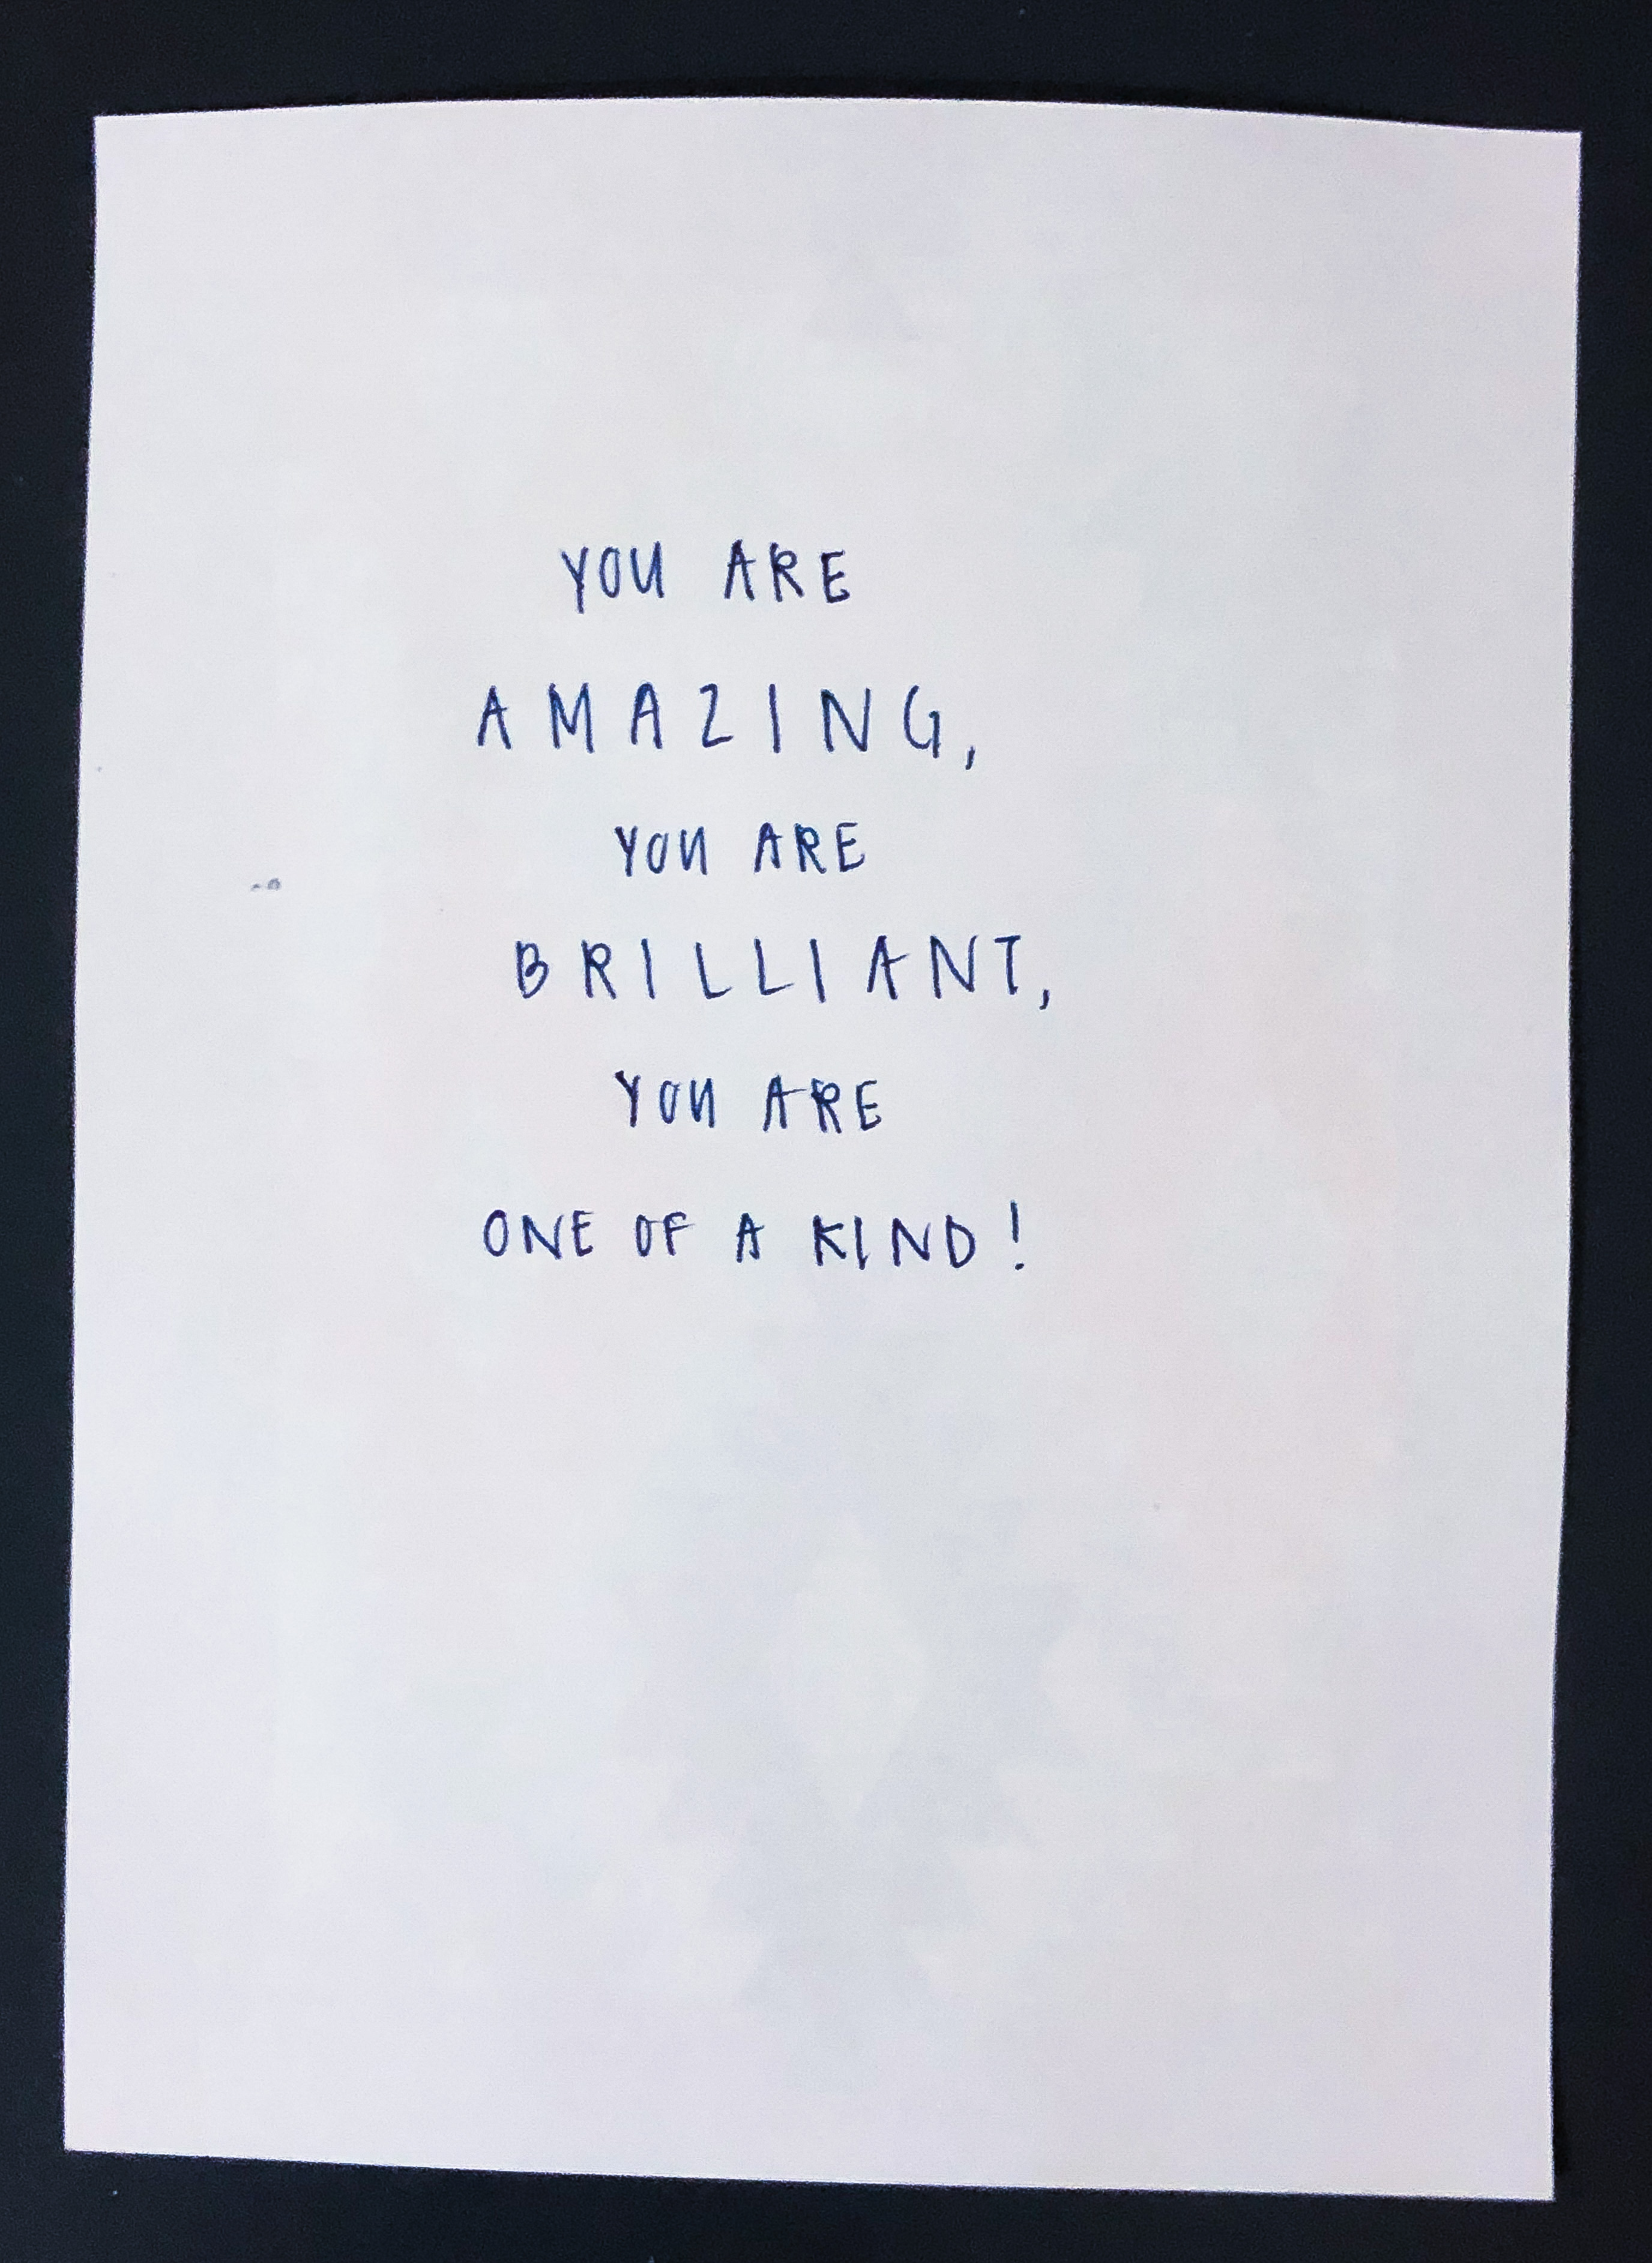 YOU ARE
AMAZING,
YOU ARE
BRILLIANT,
YOU ARE
ONE OF A KIND!